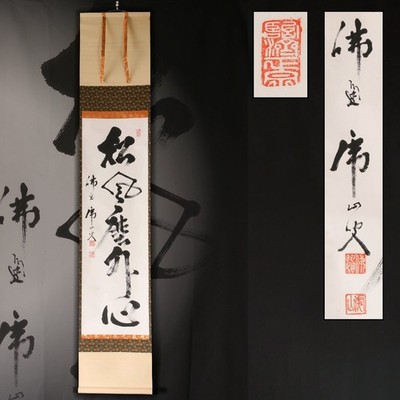 松風塵外心
佛通 虎山叟
佛通 虎山叟